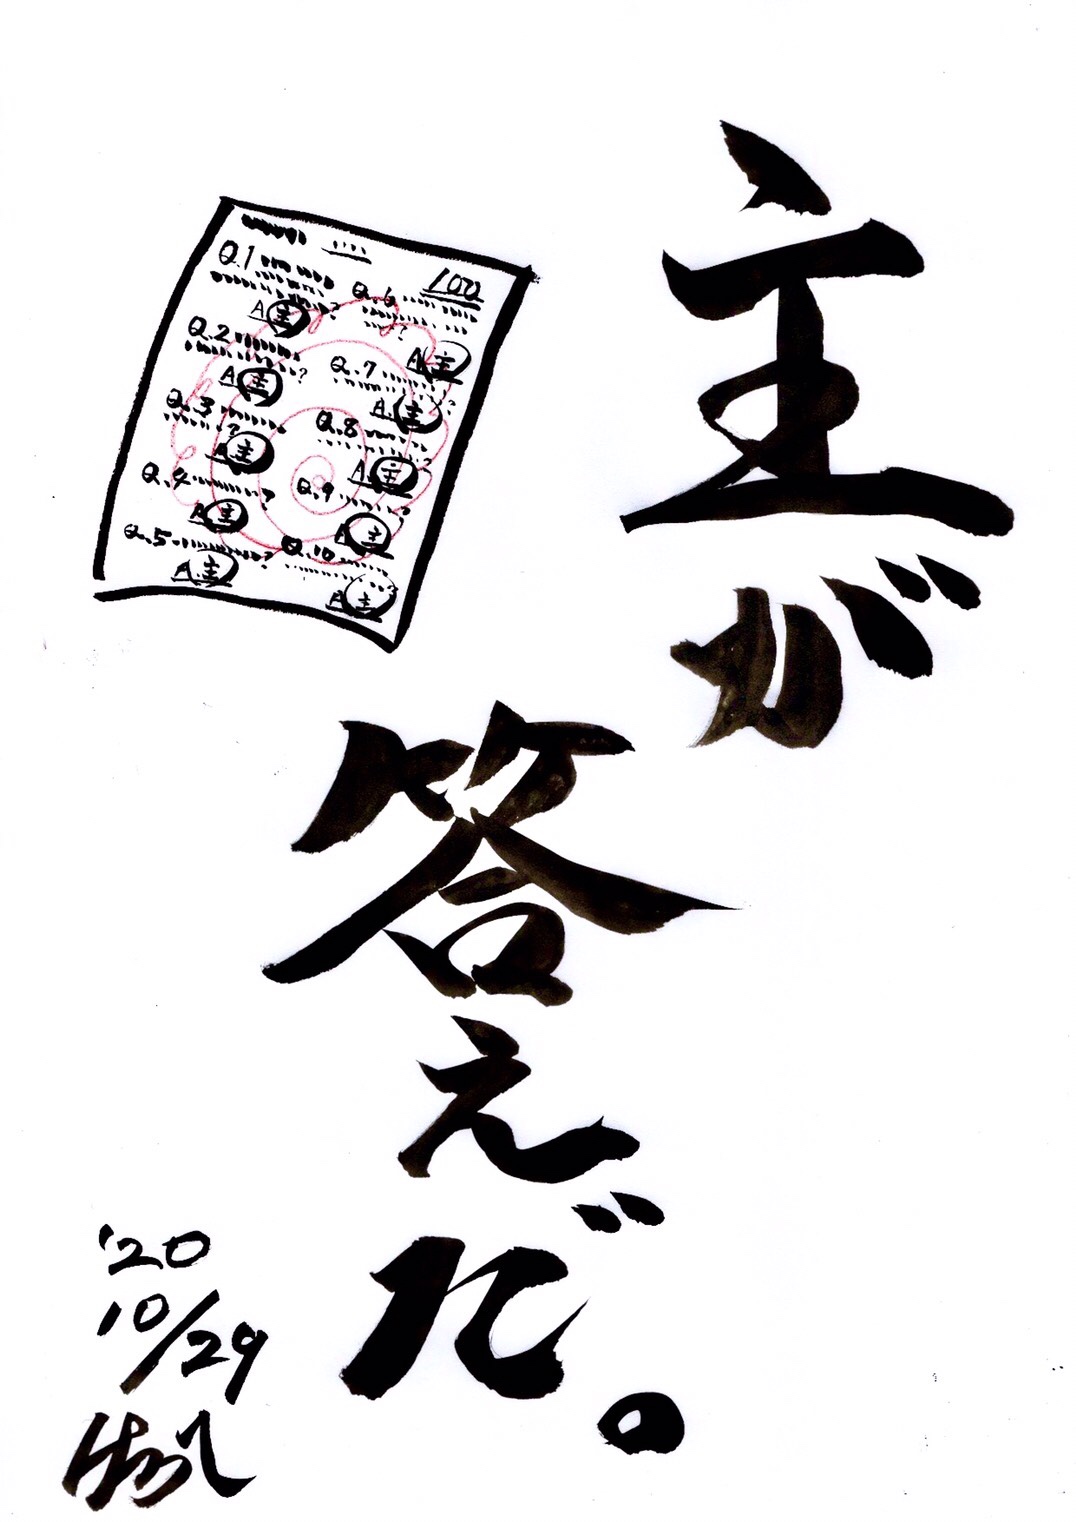 主が
答えだ。
100
Q.1
A 主
Q.2
?
A 主
Q.3
?
A 主
Q.4
?
A 主
Q.5
?
A 主
Q.6
?
A 主
Q.7
?
A 主
Q.8
?
A 主
Q.9
?
A 主
Q.10
?
A 主
'20
10/29